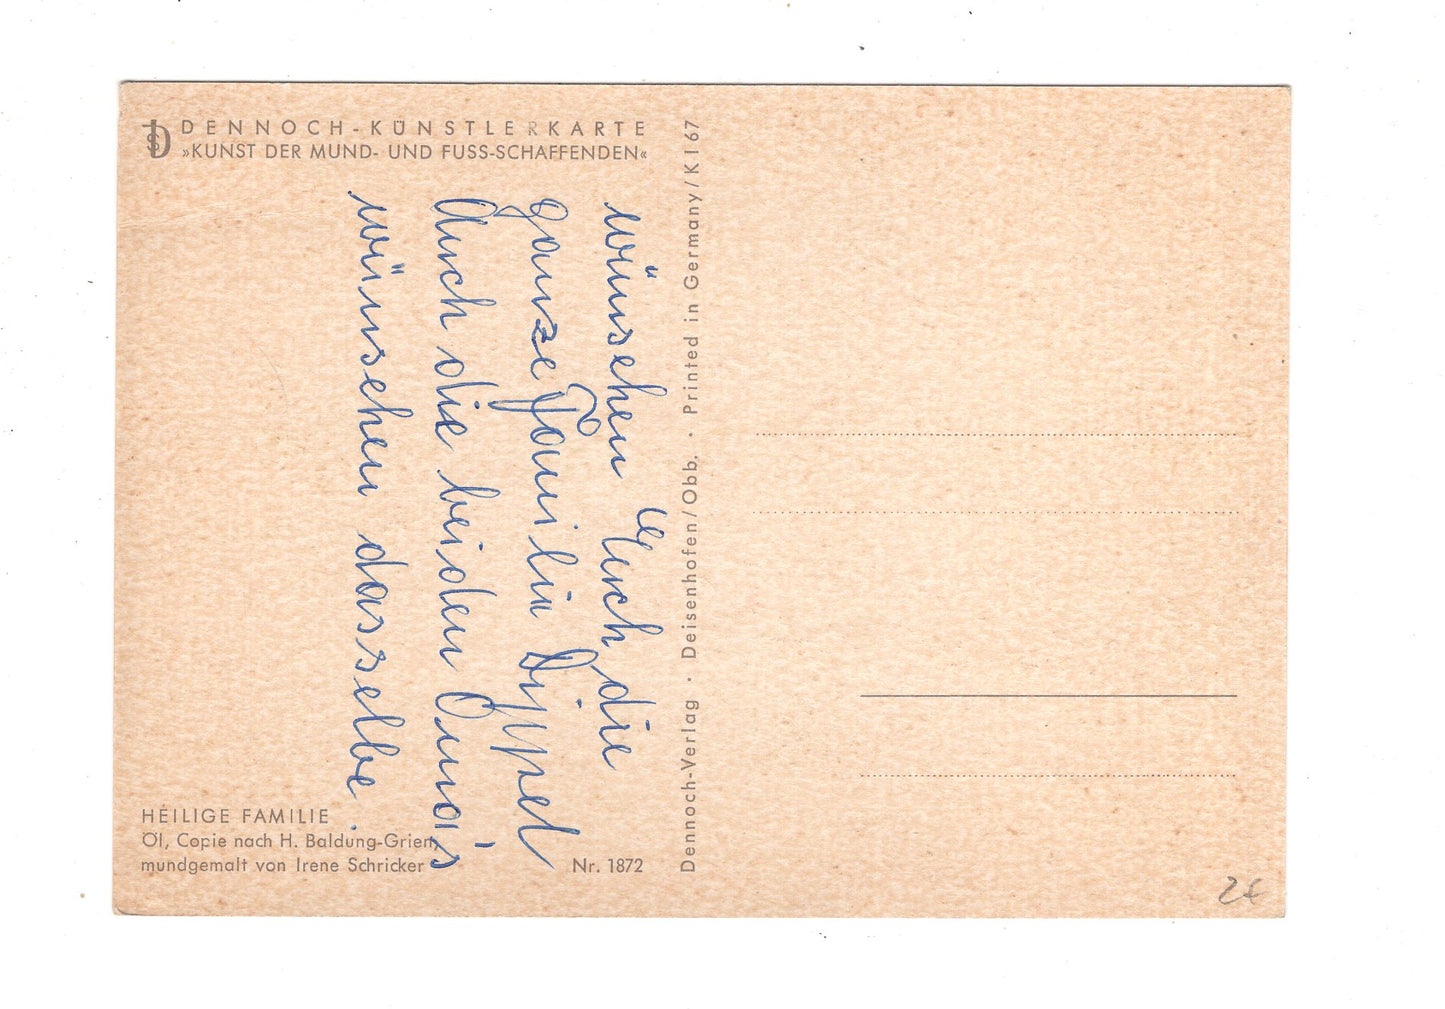 DENNOCH-KÜNSTLERKARTE
»KUNST DER MUND- UND FUSS-SCHAFFENDEN«
wünschen Euch die
ganze Familie Dippel
Auch die beiden Oma's
wünschen dasselbe.
HEILIGE FAMILIE
Öl, Copie nach H. Baldung-Grien,
mundgemalt von Irene Schricker
Nr. 1872
Dennoch-Verlag · Deisenhofen/Obb. · Printed in Germany/K I 67
2€